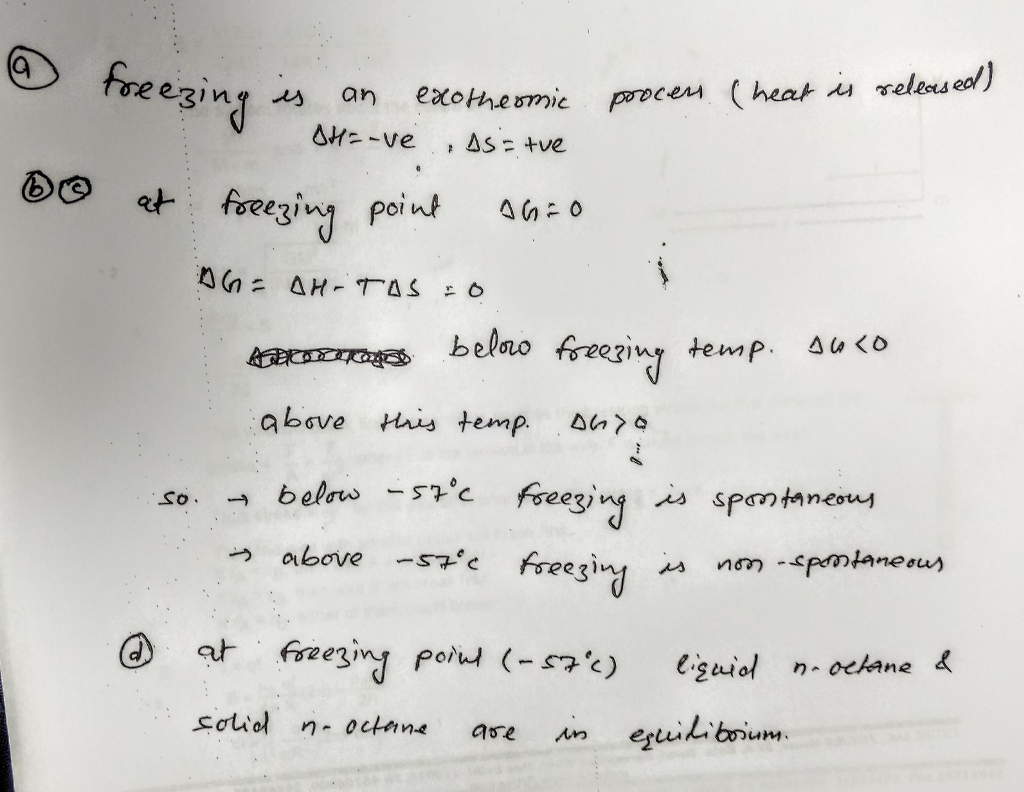 (a) freezing is an exothermic process (heat is released)
ΔH = -ve , ΔS = +ve
(b) (c) at freezing point ΔG = 0
ΔG = ΔH - TΔS = 0
below freezing temp. ΔG < 0
above this temp. ΔG > 0
so. → below -57°c freezing is spontaneous
→ above -57°c freezing is non-spontaneous
(d) at freezing point (-57°c) liquid n-octane &
solid n-octane are in equilibrium.